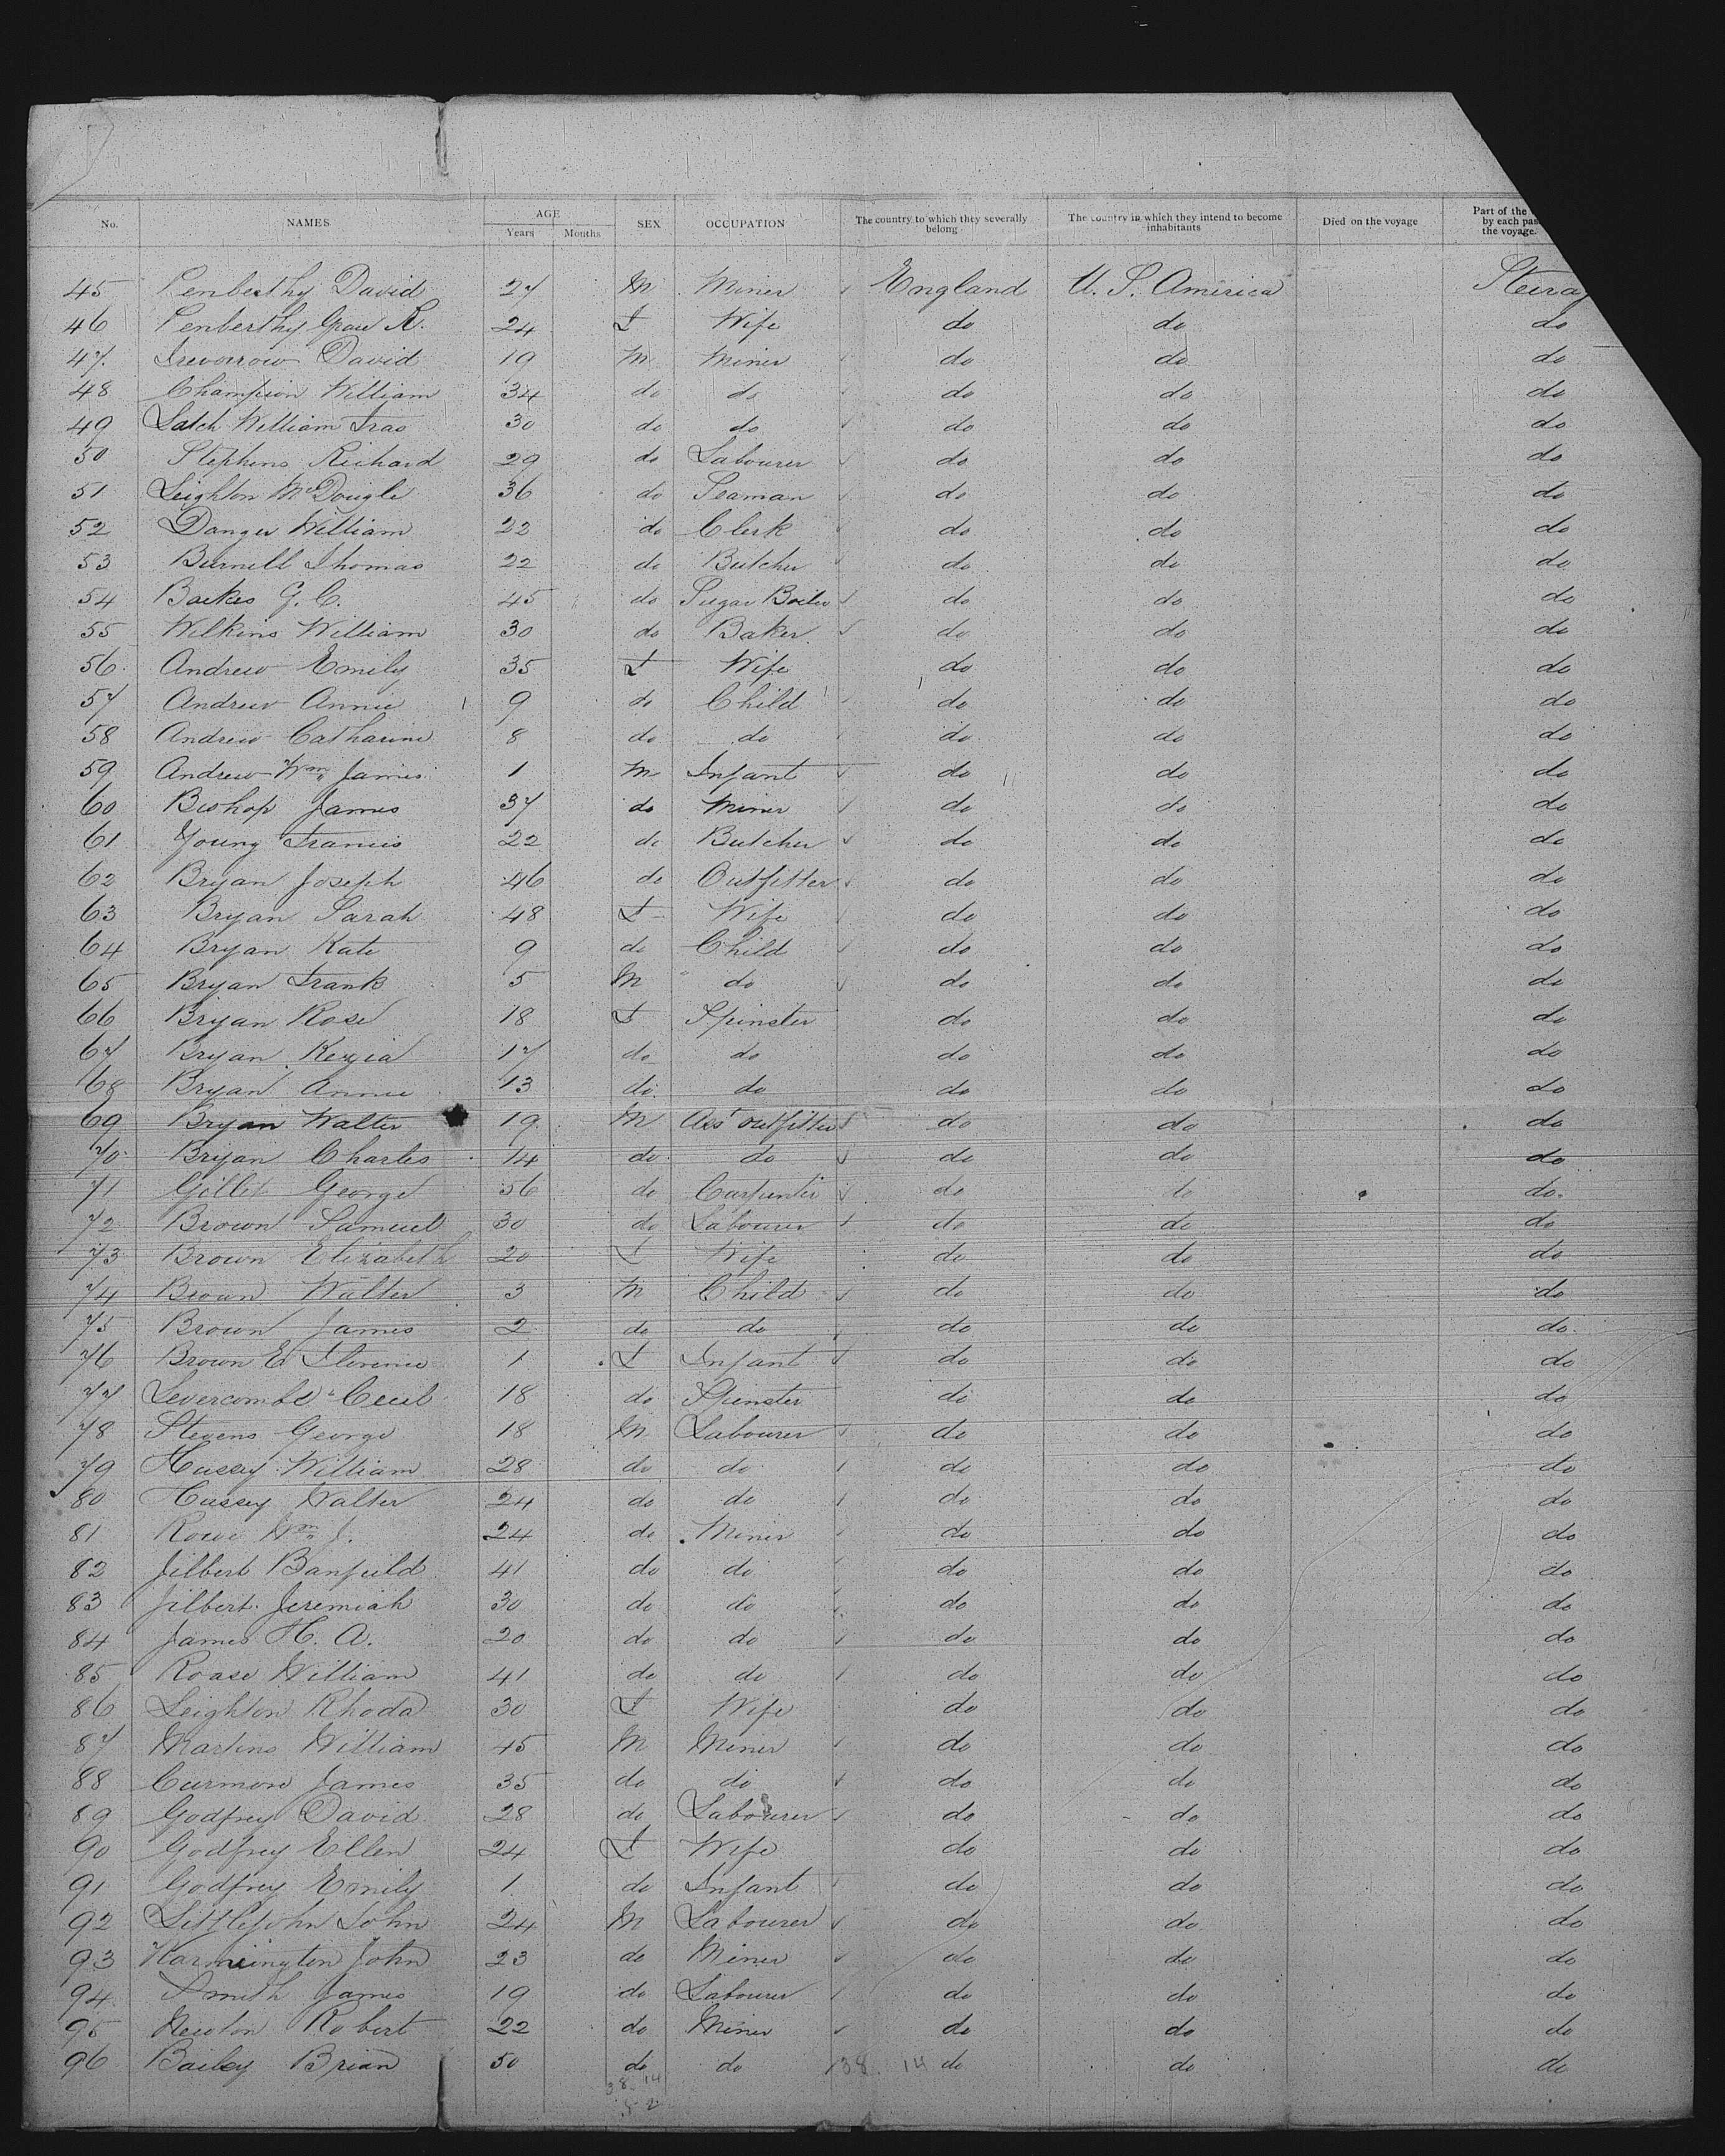 No. NAMES AGE Years Months SEX OCCUPATION The country to which they severally belong The country in which they intend to become inhabitants Died on the voyage Part of the by each pas the voyage.
45 Penberthy David 27 M Miner England U. S. America Steerag
46 Penberthy Grace R. 24 F Wife do do do
47. Trevorrow David 19 M Miner do do do
48 Champion William 34 do do do do do
49 Latch William Fras 30 do do do do do
50 Stephens Richard 29 do Labourer do do do
51 Leighton McDougle 36 do Seaman do do do
52 Danger William 22 do Clerk do do do
53 Burnell Thomas 22 do Butcher do do do
54 G. C. 45 do Sugar Boiler do do do
55 Wilkins William 30 do Baker do do do
56. Andrew Emily 35 F Wife do do do
57 Andrew Annie 9 do Child do do do
58 Andrew Catharine 8 do do do do do
59 Andrew Wm James 1 M Infant do do do
60 Bishop James 37 do Miner do do do
61 Young Francis 22 do Butcher do do do
62 Bryan Joseph 46 do Outfitter do do do
63 Bryan Sarah 48 F Wife do do do
64 Bryan Kate 9 do Child do do do
65 Bryan Frank 5 M do do do do
66 Bryan Rose 18 F Spinster do do do
67 Bryan Kezia 17 do do do do do
68 Bryan Annie 13 do do do do do
69 Bryan Walter 19 M Ast outfitter do do do
70 Bryan Charles 14 do do do do do
71 Gillet George 56 do Carpenter do do do.
72 Brown Samuel 30 do Labourer do do do
73 Brown Elizabeth 20 F Wife do do do
74 Brown Walter 3 M Child do do do
75 Brown James 2 do do do do do
76 Brown Ed Florence 1 F Infant do do do
77 Levercombe Cecil 18 do Spinster do do do
78 Stevens George 18 M Labourer do do do
79 Hussey William 28 do do do do do
80 Hussey Walter 24 do do do do do
81 Rowe Wm J. 24 do Miner do do do
82 Jilbert Banfield 41 do do do do do
83 Jilbert Jeremiah 30 do do do do do
84 James H. A. 20 do do do do do
85 Roase William 41 do do do do do
86 Leighton Rhoda 30 F Wife do do do
87 Martins William 45 M Miner do do do
88 James 35 do do do do do
89 Godfrey David 28 do Labourer do do do
90 Godfrey Ellen 24 F Wife do do do
91 Godfrey Emily 1 do Infant do do do
92 Littlejohn John 24 M Labourer do do do
93 Warmington John 23 do Miner do do do
94 Smith James 19 do Labourer do do do
95 Newton Robert 22 do Miner do do do
96 Bailey Brian 50 do do 38. 14 do do do
38 14
52